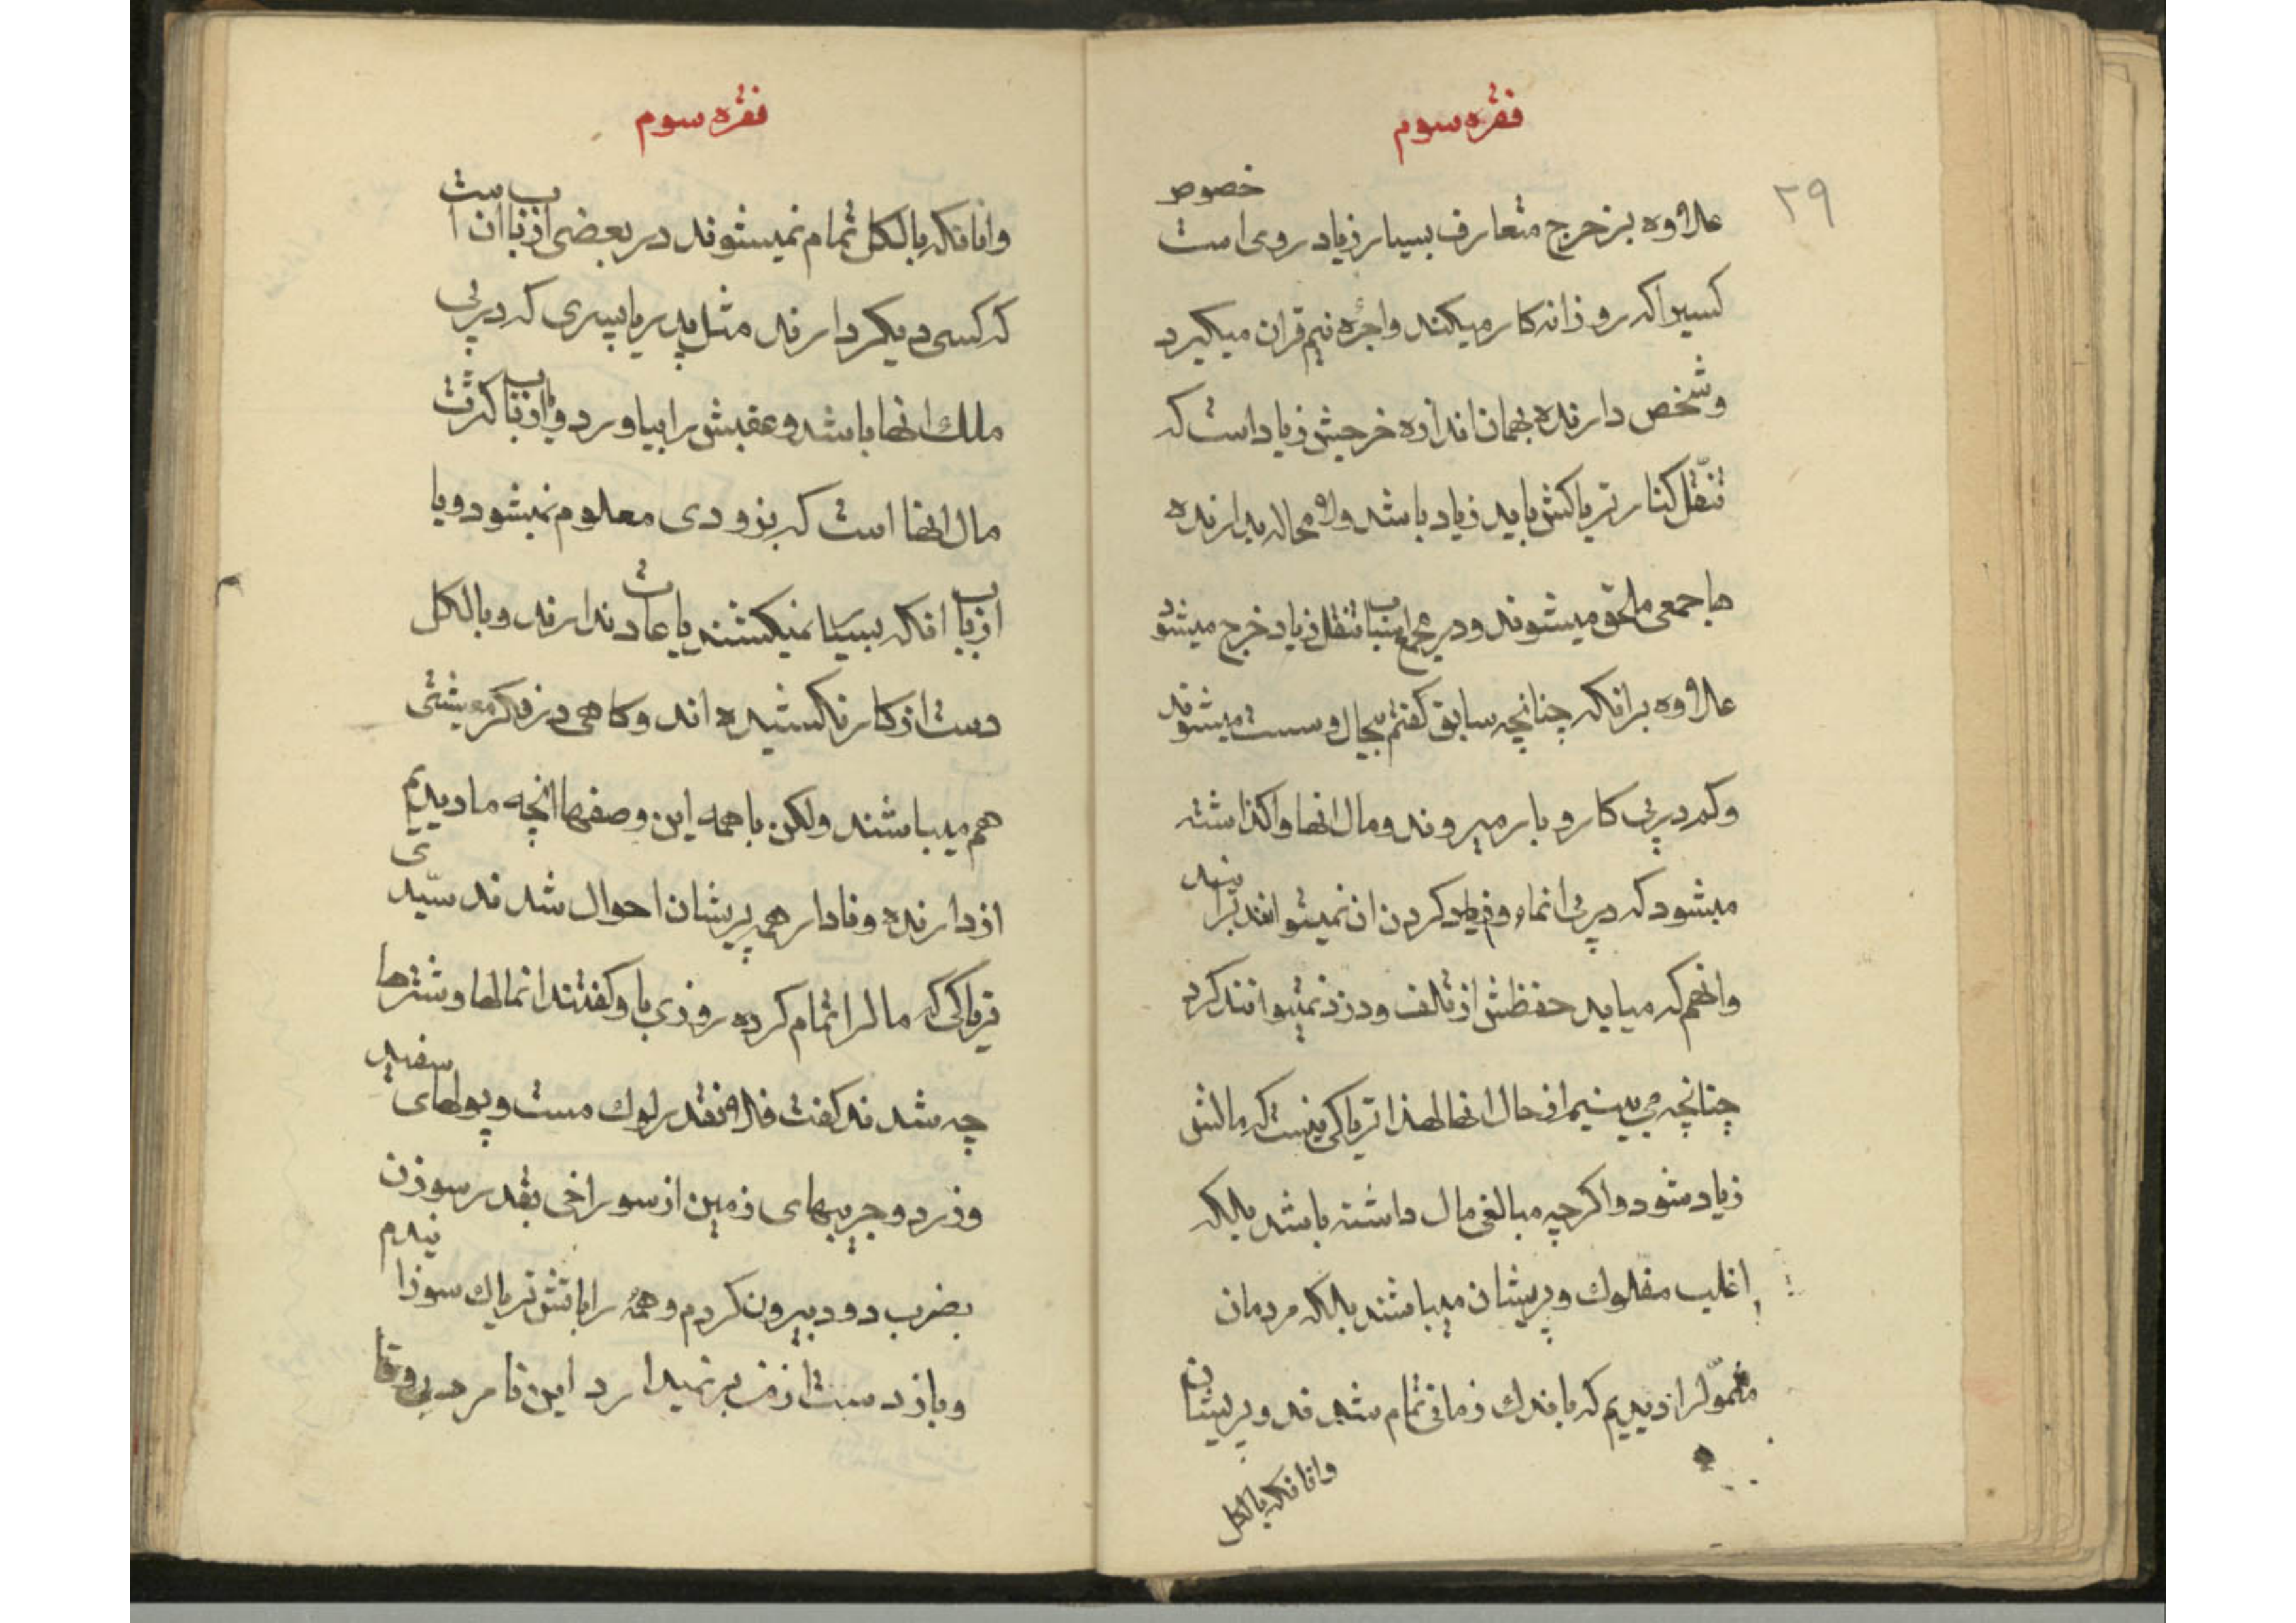 فقره سوم
۲۹
علاوه بر خرج متعارف بسیار زیاد روی است خصوص
کسیرا که روزانه کار میکند واجرة نیم قران میکیرد
وشخص دارنده بهمان اندازه خرجش زیاد است که
تنقّل کنار تریاکش باید زیاد باشد ولا محاله بدارنده
ها جمعی ملحق میشوند ودر مجمع اینباب تنقل زیاد خرج میشود
علاوه برانکه چنانچه سابق کفتم بیحال وسست میشوند
وکم در پی کار وبار میروند ومال انها واکذاشته
میشود که در پی انماء وزیاد کردن ان نمیتوانند برایند
وانهم که میاید حفظش از تلف ودزد نمیتوانند کرد
چنانچه می بینیم از حال انها لهذا تریاکی نیست که مالش
زیاد شود واکرچه مبالغی مال داشته باشد بلکه
اغلب مفلوك وپریشان میباشند بلکه مردمان
متموّلرا دیدیم که باندك زمانی تمام شدند وپریشان
وانانکه بالکل
فقره سوم
وانانکه بالکل تمام نمیشوند در بعضی ازباب ان است
که کسی دیکر دارند مثل پدر یا پسری که در پی
ملك انها باشد وعقبش را بیاورد ویا ازباب کثرت
مال انها است که بزودی معلوم نمیشود ویا
ازباب انکه بسیار نمیکشند یا عادت ندارند وبالکل
دست از کار نکشیده اند وکاهی در فکر معیشتی
هم میباشند ولکن با همه این وصفها انچه ما دیدیم
از دارنده ونادار همه پریشان احوال شدند سیّدی
تریاکی که مالرا تمام کرده روزی باو کفتند انمالها وشترها
چه شدند کفت فلان قدر لوك مست وپولهای سفید
وزرد وجریبهای زمین از سوراخی بقدر سوزن
بضرب دود بیرون کردم وهمه را باتش تریاك سوزانیدم
وباز دست از من برنمیدارد این نامرد بی وفا